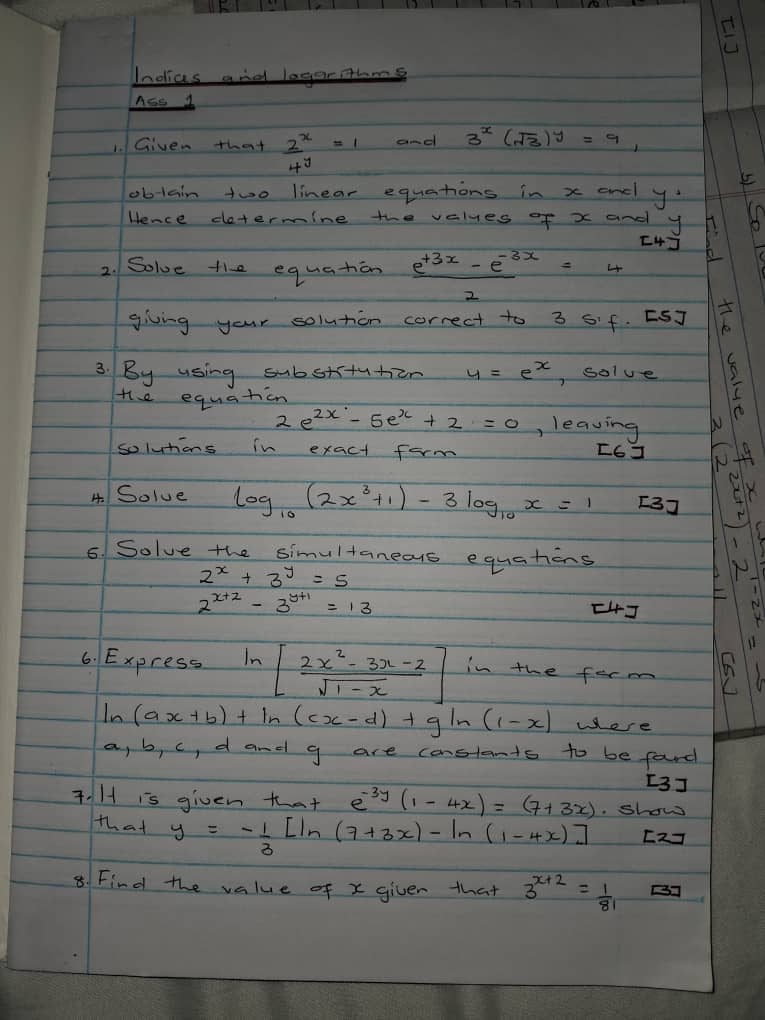 Indices and logarithms
Ass 1
1. Given that 2^x / 4^y = 1 and 3^x (√3)^y = 9,
obtain two linear equations in x and y.
Hence determine the values of x and y
[4]
2. Solve the equation (e^{+3x} - e^{-3x}) / 2 = 4
giving your solution correct to 3 s.f. [5]
3. By using substitution y = e^x, solve
the equation
2e^{2x} - 5e^x + 2 = 0, leaving
solutions in exact form [6]
4. Solve log_10 (2x^3+1) - 3 log_10 x = 1 [3]
5. Solve the simultaneous equations
2^x + 3^y = 5
2^{x+2} - 3^{y+1} = 13 [4]
6. Express ln [ (2x^2 - 3x - 2) / √(1 - x) ] in the form
ln (ax+b) + ln (cx-d) + g ln (1-x) where
a, b, c, d and g are constants to be found
[3]
7. It is given that e^{-3y} (1 - 4x) = (7+3x). show
that y = -1/3 [ln (7+3x) - ln (1-4x)] [2]
8. Find the value of x given that 3^{x+2} = 1/81 [3]
[1]
Find the value of x
[5]